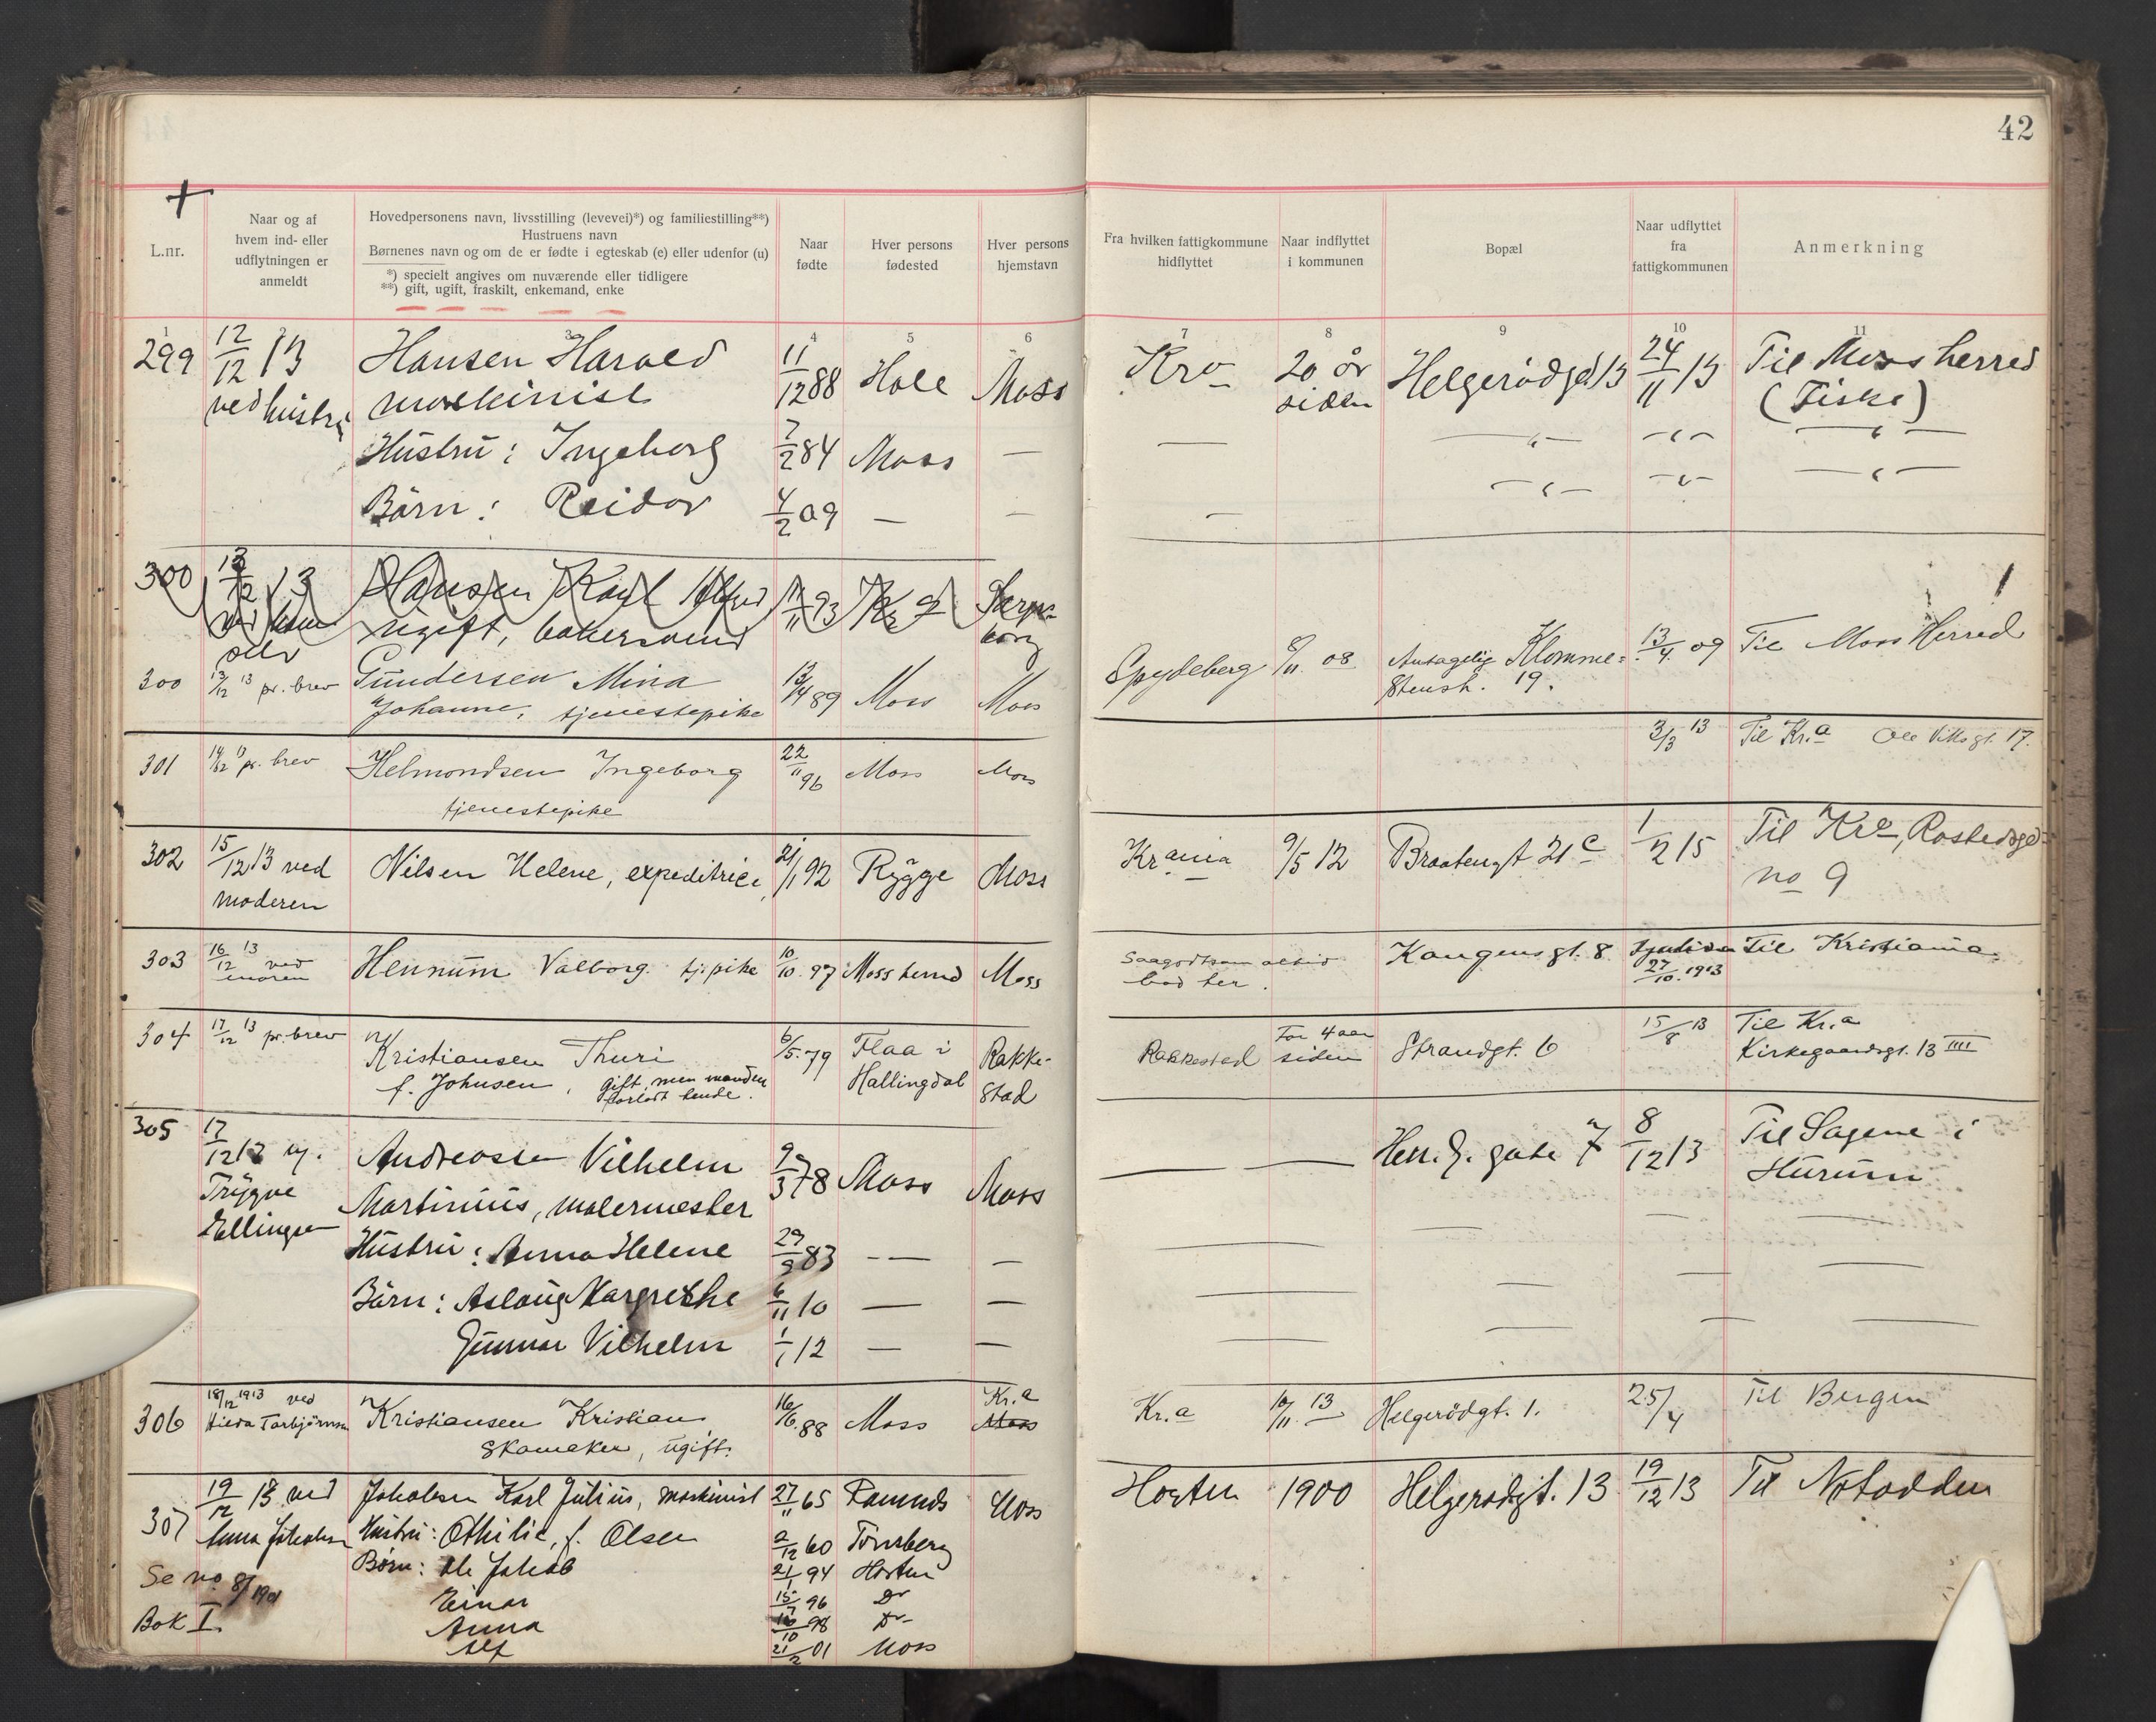 42
L.nr.
Naar og af
hvem ind- eller
udflytningen er
anmeldt
Hovedpersonens navn, livsstilling (levevei)*) og familiestilling**)
Hustruens navn
Børnenes navn og om de er fødte i egteskab (e) eller udenfor (u)
*) specielt angives om nuværende eller tidligere
**) gift, ugift, fraskilt, enkemand, enke
Naar
fødte
Hver persons
fødested
Hver persons
hjemstavn
Fra hvilken fattigkommune
hidflyttet
Naar indflyttet
i kommunen
Bopæl
Naar udflyttet
fra
fattigkommunen
Anmerkning
1 3 4 5 6 7 8 9 10 11
299 12/12 13 Hansen Harald 11/12 88 Hole Moss Kra 20 år Helgerødgd 13 24/11 13 Til Moss herred
ved hustru maskinist siden (Fiske)
Hustru: Ingeborg 7/2 84 Moss — — —"— —"— —"—
Børn: Reidar 4/2 09 — — — —"— —"— —"—
300 13/12 13 Hansen Karl Alfred 11/11 93 Kra Sarps-
ugift, bakersvend borg
selv
300 13/12 13 pr. brev Gundersen Mina 13/4 89 Moss Moss Spydeberg 8/11 08 Antagelig Klomme- 13/4 09 Til Moss Herred
Johanne, tjenestepike Stensh. 19.
301 14/12 13 pr. brev Helmondsen Ingeborg 22/11 96 Moss Moss 3/3 13 Til Kr.a Ole Viksgt. 17.
tjenestepike
302 15/12 13 ved Nilsen Helene, expeditrice, 21/1 92 Rygge Moss Krania 9/5 12 Braatengt 21c 1/2 15 Til Kra, Rostedsgd
moderen no 9
303 16/12 13 ved Hennum Valborg. tj.pike 10/10. 97 Moss herred Moss Saagodtsom altid Kongensgt. 8 Til Kristiania.
moren bod her. 27/10. 1913
304 17/12 13 pr. brev Kristiansen Thuri 6/5. 79 Flaa i Rakke- Rakkestad For 4 aar Strandgt. 6 15/8 13 Til Kr.a
f. Johnsen, gift, men manden Hallingdal stad siden Kirkegaardsgt. 13 IIII
forlatt hende.
305 17/12 13 Andreassen Vilhelm 9/3 78 Moss Moss — — Hen. G. gate 7 8/12 13 Til Sagene i
Trygve Martinius, malermester Hurum
Ellingsen Hustru: Anna Helene 29/9 83 — — —
Børn: Aslaug Margrethe 6/11 10 — —
Gunnar Vilhelm 1/1 12 — —
306 18/12 1913 ved Kristiansen Kristian 16/6. 88 Moss Kr.a Kr.a 10/11. 13 Helgerødgt. 1. 25/4 Til Bergen
Hilda Torbjørnsen skomaker, ugift. Moss
307 19/12 13 ved Jakobsen Karl Julius, maskinist 27/11 65 Ramnds Moss Horten 1900 Helgerødgt. 13 19/12 13 Til Notodden
Anna Jakobsen Hustru: Othilie, f. Olsen 2/12 60 Tønsberg
Se no 8/1901 Børn: Ole Jakob 21/1 94 Horten
Bok I. Einar 15/7 96 Do
Anna 16/10 98 Do
Alf 21/2 01 Moss